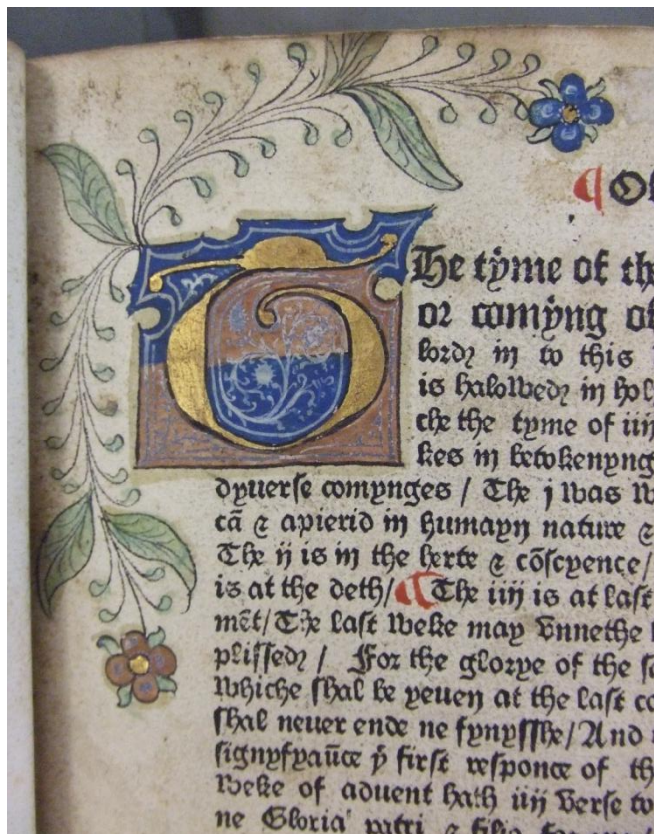 ¶ Of
The tyme of th
or comyng of
lord in to this
is halowed in hol
che the tyme of iiij
kes in betokenyng
dyuerse comynges / The j was w
cā ⁊ apierid in humayn nature ⁊
The ij is in the herte ⁊ cōscyence/
is at the deth/ ¶ The iiij is at last
mēt/ The last weke may vnnethe
plissed / For the glorye of the s
Whiche shal be yeuen at the last co
shal neuer ende ne fynysshe/ And
signyfyaūce yͤ first responce of th
weke of aduent hath iiij verse to
ne Gloria patri ⁊ filio